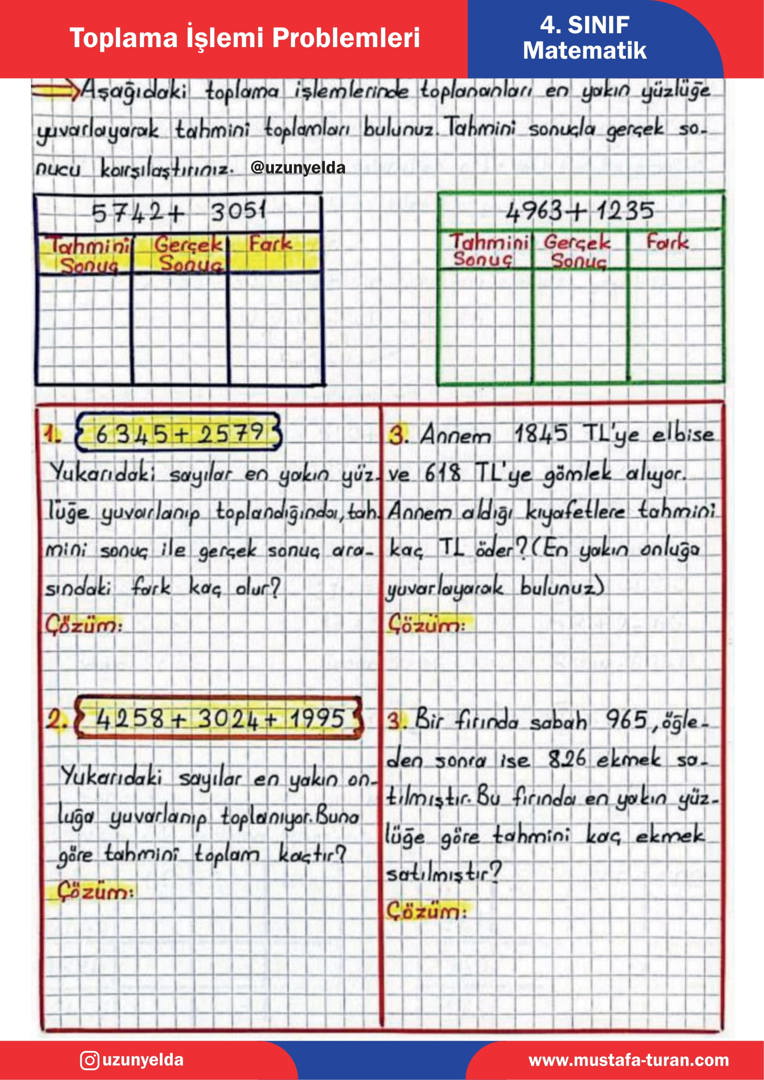 Toplama İşlemi Problemleri
4. SINIF
Matematik
Aşağıdaki toplama işlemlerinde toplananları en yakın yüzlüğe
yuvarlayarak tahmini toplamları bulunuz. Tahmini sonuçla gerçek so-
nucu karşılaştırınız. @uzunyelda
5742+ 3051
Tahmini Sonuç Gerçek Sonuç Fark
4963+ 1235
Tahmini Sonuç Gerçek Sonuç Fark
1. 6345+2579
Yukarıdaki sayılar en yakın yüz-
lüğe yuvarlanıp toplandığında, tah-
mini sonuç ile gerçek sonuç ara-
sındaki fark kaç olur?
Çözüm:
2. 4258+ 3024+ 1995
Yukarıdaki sayılar en yakın on-
luğa yuvarlanıp toplanıyor. Buna
göre tahmini toplam kaçtır?
Çözüm:
3. Annem 1845 TL'ye elbise
ve 618 TL'ye gömlek alıyor.
Annem aldığı kıyafetlere tahmini
kaç TL öder? (En yakın onluğa
yuvarlayarak bulunuz)
Çözüm:
3. Bir fırında sabah 965, öğle-
den sonra ise 826 ekmek sa-
tılmıştır. Bu fırında en yakın yüz-
lüğe göre tahmini kaç ekmek
satılmıştır?
Çözüm:
uzunyelda
www.mustafa-turan.com